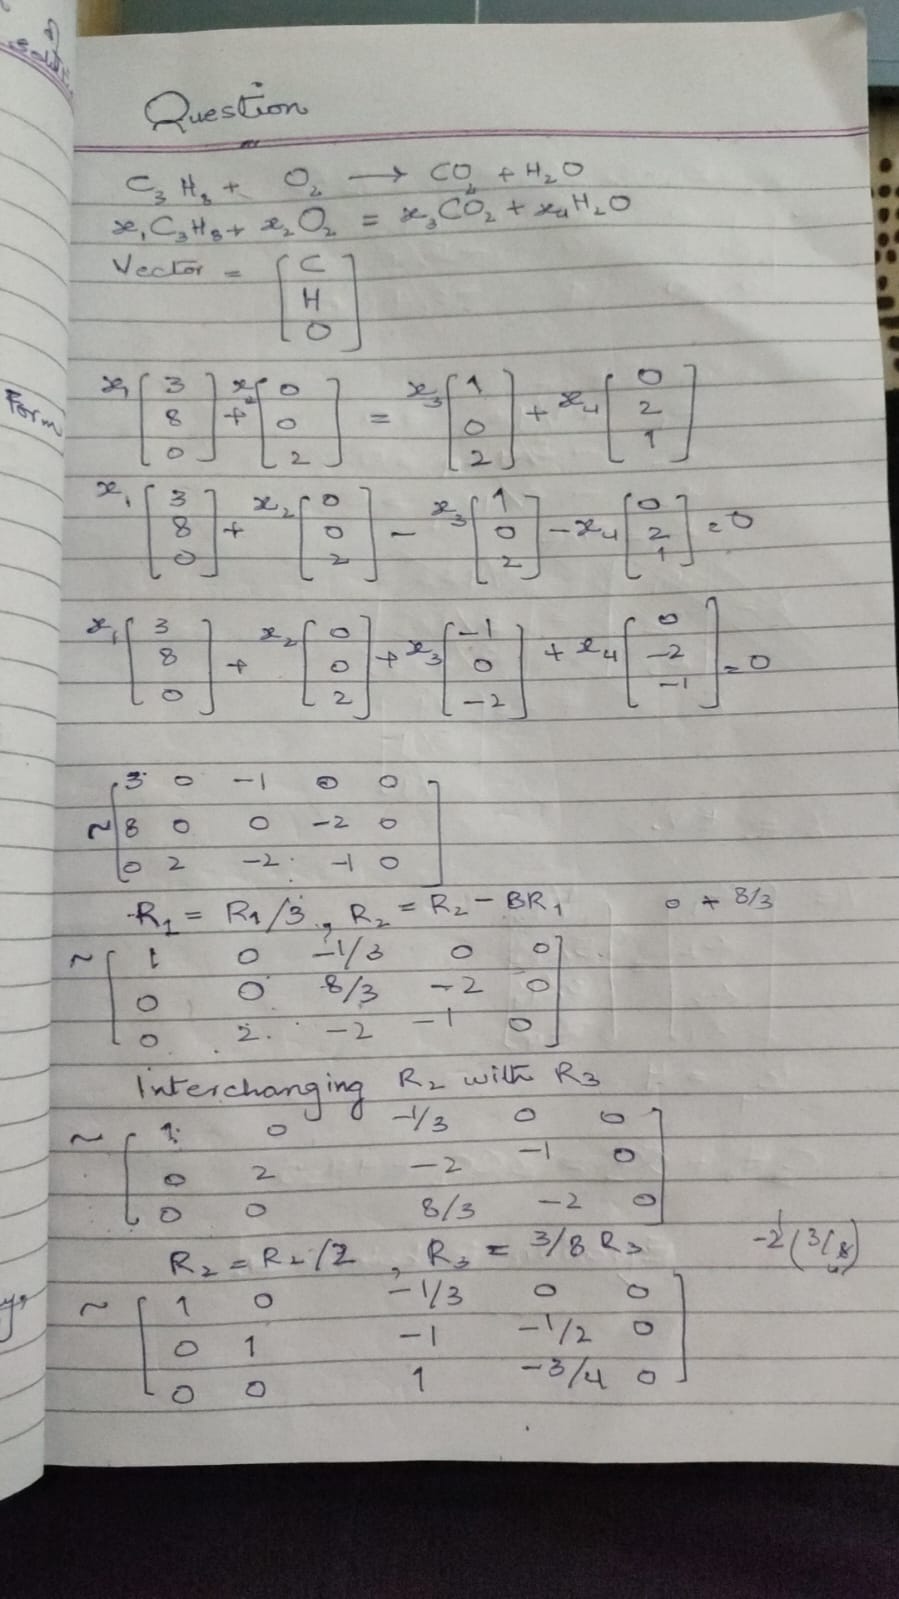 Question
C₃H₈ + O₂ → CO₂ + H₂O
x₁C₃H₈ + x₂O₂ = x₃CO₂ + x₄H₂O
Vector = [C
H
O]
Form
x₁ [3 8 0] + x₂ [0 0 2] = x₃ [1 0 2] + x₄ [0 2 1]
x₁ [3 8 0] + x₂ [0 0 2] - x₃ [1 0 2] - x₄ [0 2 1] = 0
x₁ [3 8 0] + x₂ [0 0 2] + x₃ [-1 0 -2] + x₄ [0 -2 -1] = 0
[3 0 -1 0 0
~ 8 0 0 -2 0
0 2 -2 -1 0]
R₁ = R₁/3, R₂ = R₂ - 8R₁ 0 + 8/3
~ [1 0 -1/3 0 0
0 0 8/3 -2 0
0 2 -2 -1 0]
Interchanging R₂ with R₃
~ [1 0 -1/3 0 0
0 2 -2 -1 0
0 0 8/3 -2 0]
R₂ = R₂/2, R₃ = 3/8 R₃
~ [1 0 -1/3 0 0
0 1 -1 -1/2 0
0 0 1 -3/4 0]